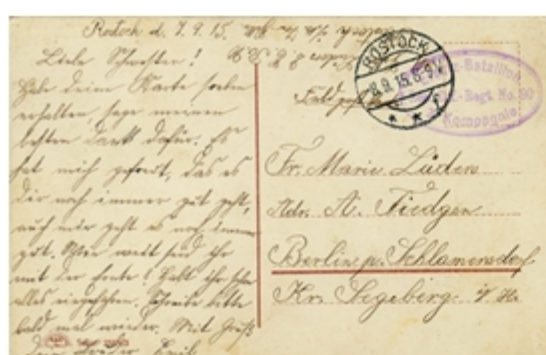 Rostock d. 7.9.15.
Liebe Schwester!
Habe deine Karte soeben
erhalten, sage meinen
besten Dank dafür. Es
hat mich gefreut, das es
dir noch immer gut geht,
auch mir geht es noch immer
gut. Wie weit seid ihr
mit der Ernte! Habt ihr schon
alles eingefahren. Schreibe bitte
bald mal wieder. Mit Gruß
dein Bruder Emil
ROSTOCK
8.9.15.8-9V.
Bataillon
Regt. No. 90
Kompagnie
Feldpost
Fr. Marie Lüders
Adr. A. Fiedgen
Berlin p. Schlamersdorf
Kr. Segeberg. i/H.